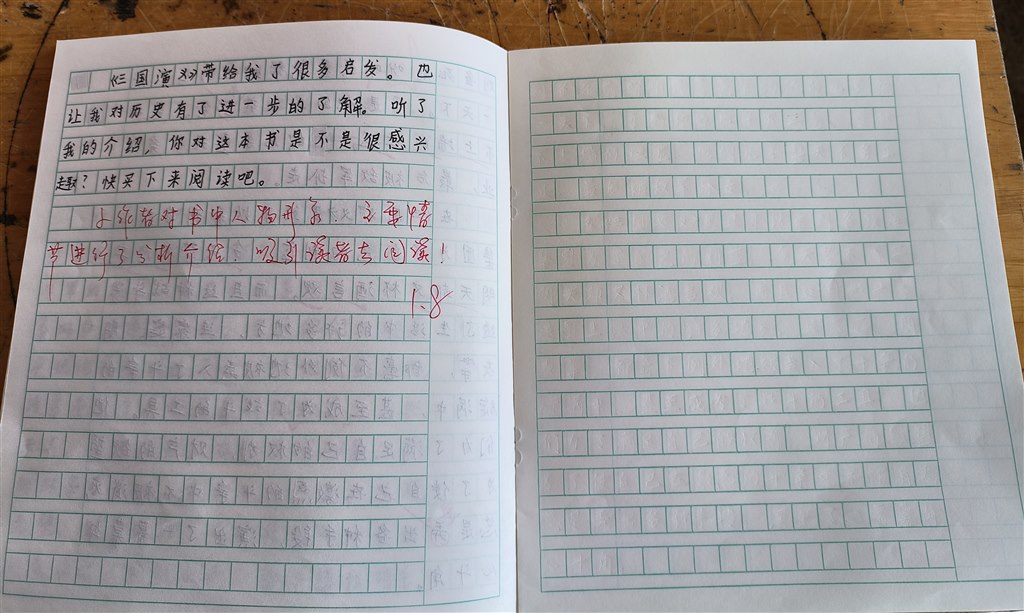 《三国演义》带给我了很多启发。也
让我对历史有了进一步的了解。听了
我的介绍，你对这本书是不是很感兴
趣？快买下来阅读吧。
小作者对书中人物形象、主要情
节进行了分析介绍，吸引读者去阅读！
1.8